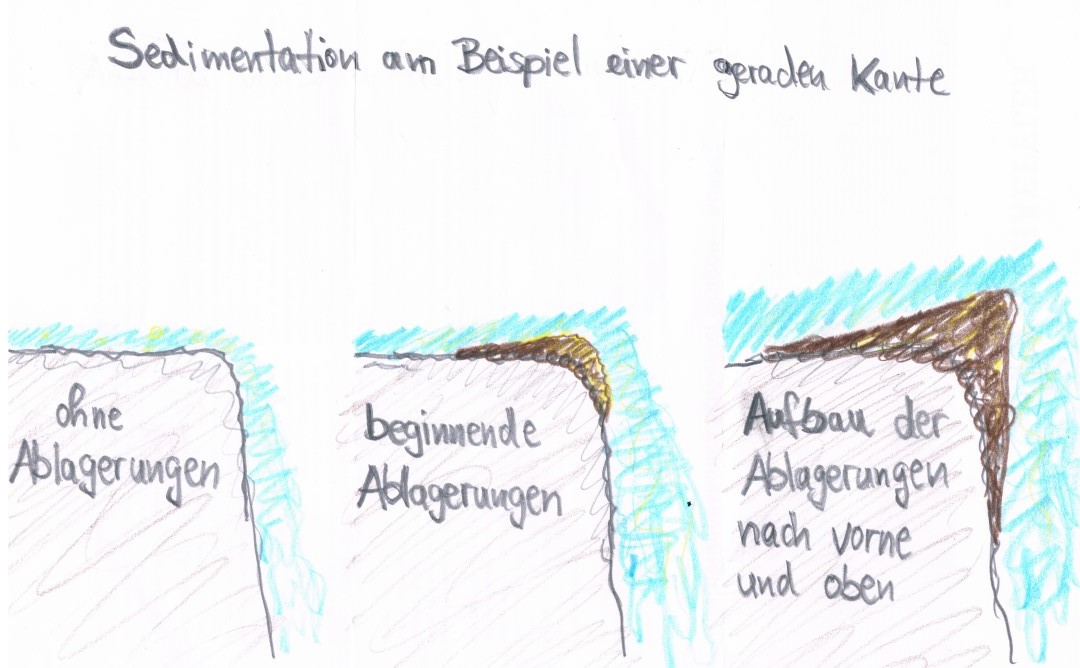 Sedimentation am Beispiel einer geraden Kante
ohne
Ablagerungen
beginnende
Ablagerungen
Aufbau der
Ablagerungen
nach vorne
und oben